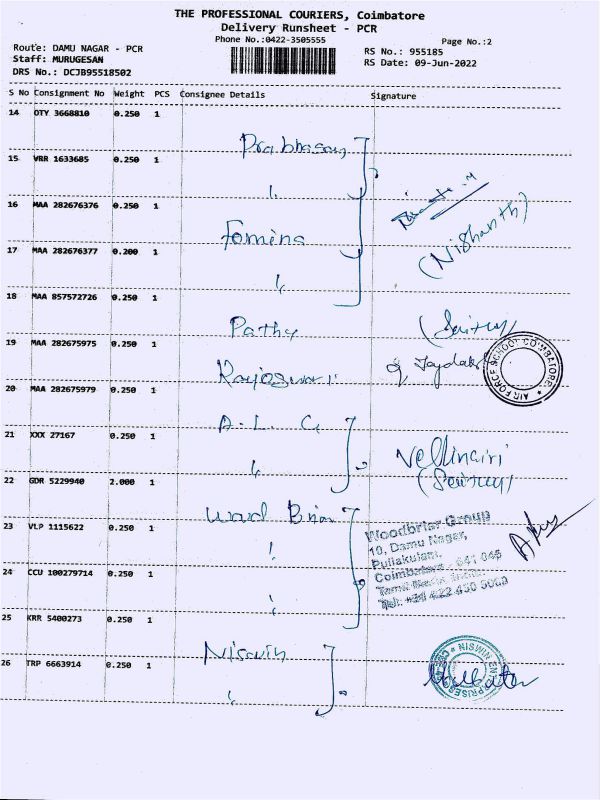 THE PROFESSIONAL COURIERS, Coimbatore
Delivery Runsheet - PCR
Phone No.:0422-3505555
Page No.:2
Route: DAMU NAGAR - PCR
RS No.: 955185
Staff: MURUGESAN
RS Date: 09-Jun-2022
DRS No.: DCJB95518502
S No Consignment No Weight PCS Consignee Details Signature
14 OTY 3668810 0.250 1
Prabhasan
15 VRR 1633685 0.250 1
16 MAA 282676376 0.250 1
Fomina
(Nishanth)
17 MAA 282676377 0.200 1
18 MAA 857572726 0.250 1
Pathy
19 MAA 282675975 0.250 1
AIR FORCE SCHOOL COIMBATORE
20 MAA 282675979 0.250 1
A. L. G
21 XXX 27167 0.250 1
Vellingiri
22 GDR 5229940 2.000 1
Wood Briar
23 VLP 1115622 0.250 1
Woodbriar Group
10, Damu Nagar,
Puliakulam,
Coimbatore - 641 045
Tamil Nadu, India.
24 CCU 100279714 0.250 1
25 KRR 5400273 0.250 1
Niswin
26 TRP 6663914 0.250 1
NISWIN ENTERPRISES